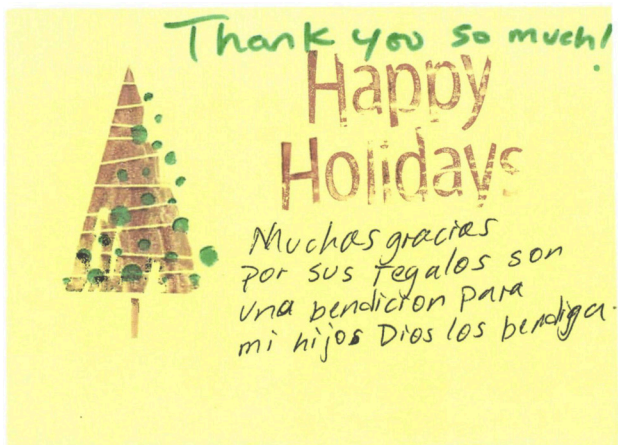 Thank you so much!
Happy
Holidays
Muchas gracias
por sus regalos son
una bendicion para
mi hijos Dios los bendiga.